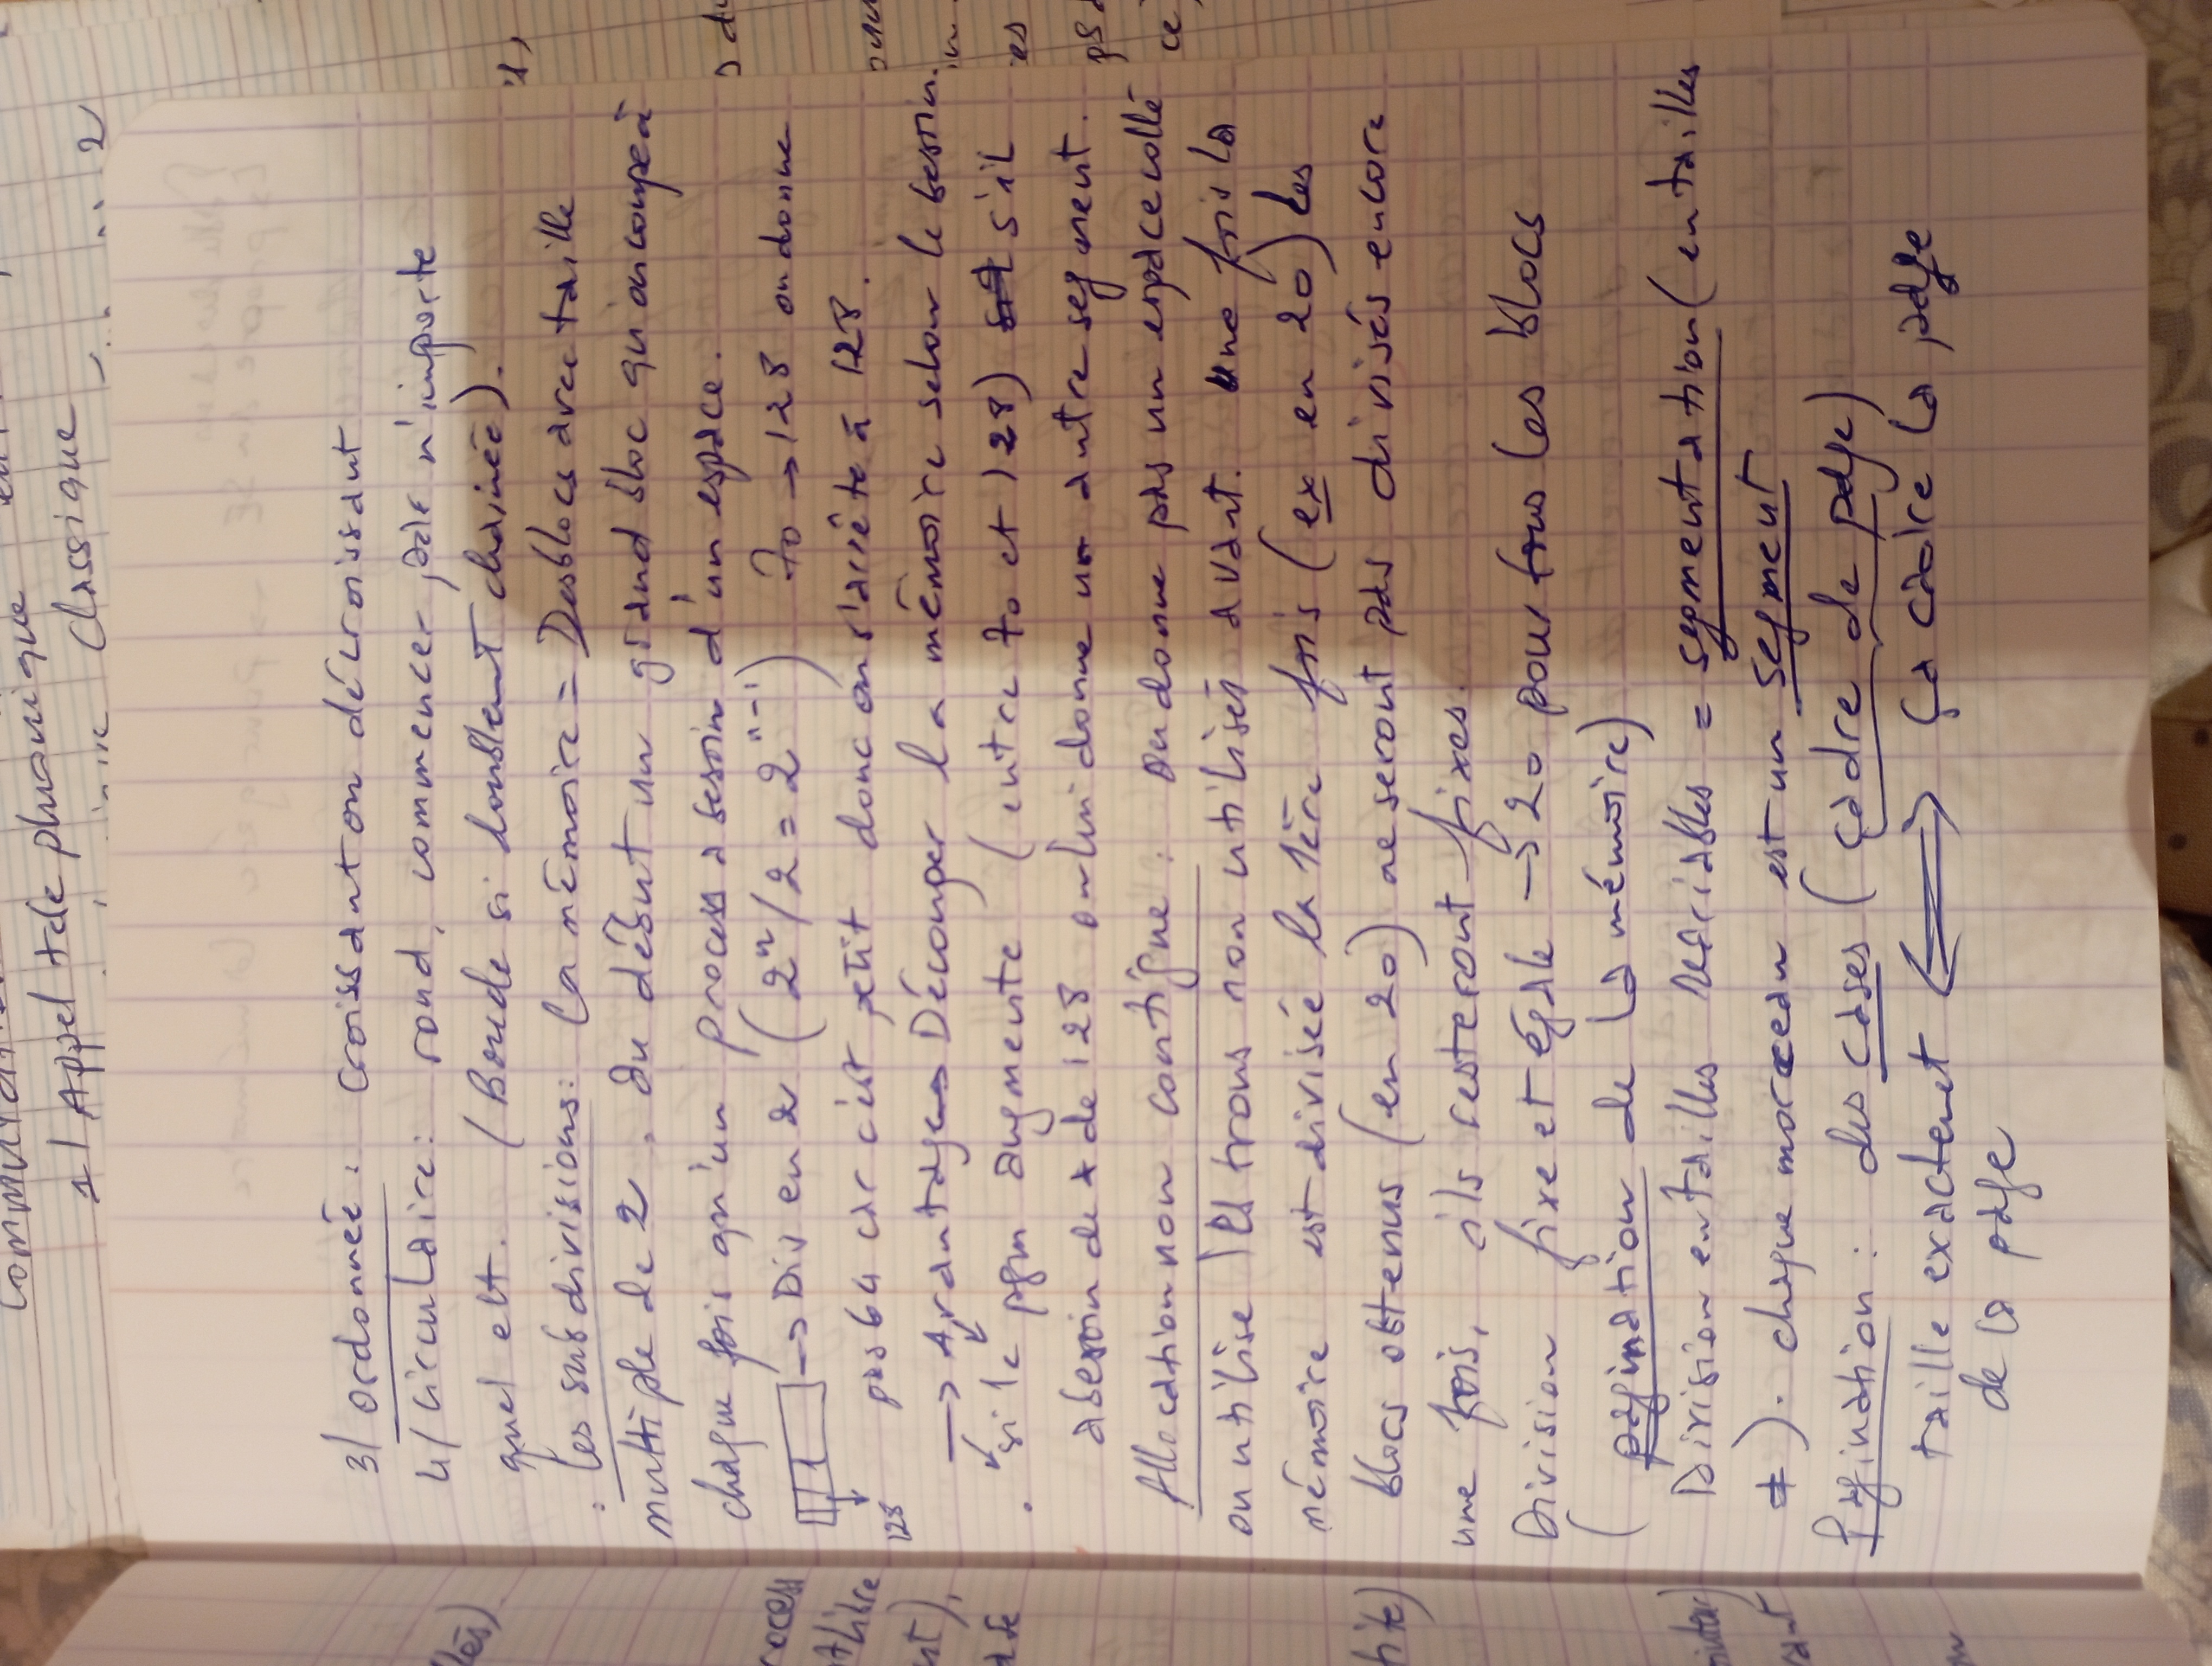 3/ Ordonnée : Croissant ou décroissant
4/ Circulaire : rond, commencer par n'importe
quel elt. (Boucle si doublemt chainée).
. Les subdivisions : la mémoire = Des blocs avec taille
multiple de 2. Au début un grand bloc qui on coupe à
chaque fois qu'un process a besoin d'un espace.
→ Div en 2 (2ⁿ/2 = 2ⁿ⁻¹) 70 → 128 on donne
128 pas 64 car c'est petit donc on s'arrête à 128.
→ Avantages Découper la mémoire selon le besoin.
. si le pgm augmente (entre 70 et 128) s'il
a besoin de + de 128 on lui donne un autre segment.
Allocation non contigüe : On donne pas un espace collé
on utilise les trous non utilisés avant. Une fois la
mémoire est divisée la 1ère fois (ex en 20) les
blocs obtenus (en 20) ne seront pas divisés encore
une fois, ils resteront fixes.
Division fixe et égale → 20 pour tous les blocs
(pagination de la mémoire)
Division en tailles variables = segmentation (en tailles
≠). chaque morceau est un segment
Pagination : des cases (cadre de page)
taille exactemt ⟺ Ça cadre la page
de la page
Commutation
1/ Appel téléphonique
Classique
2